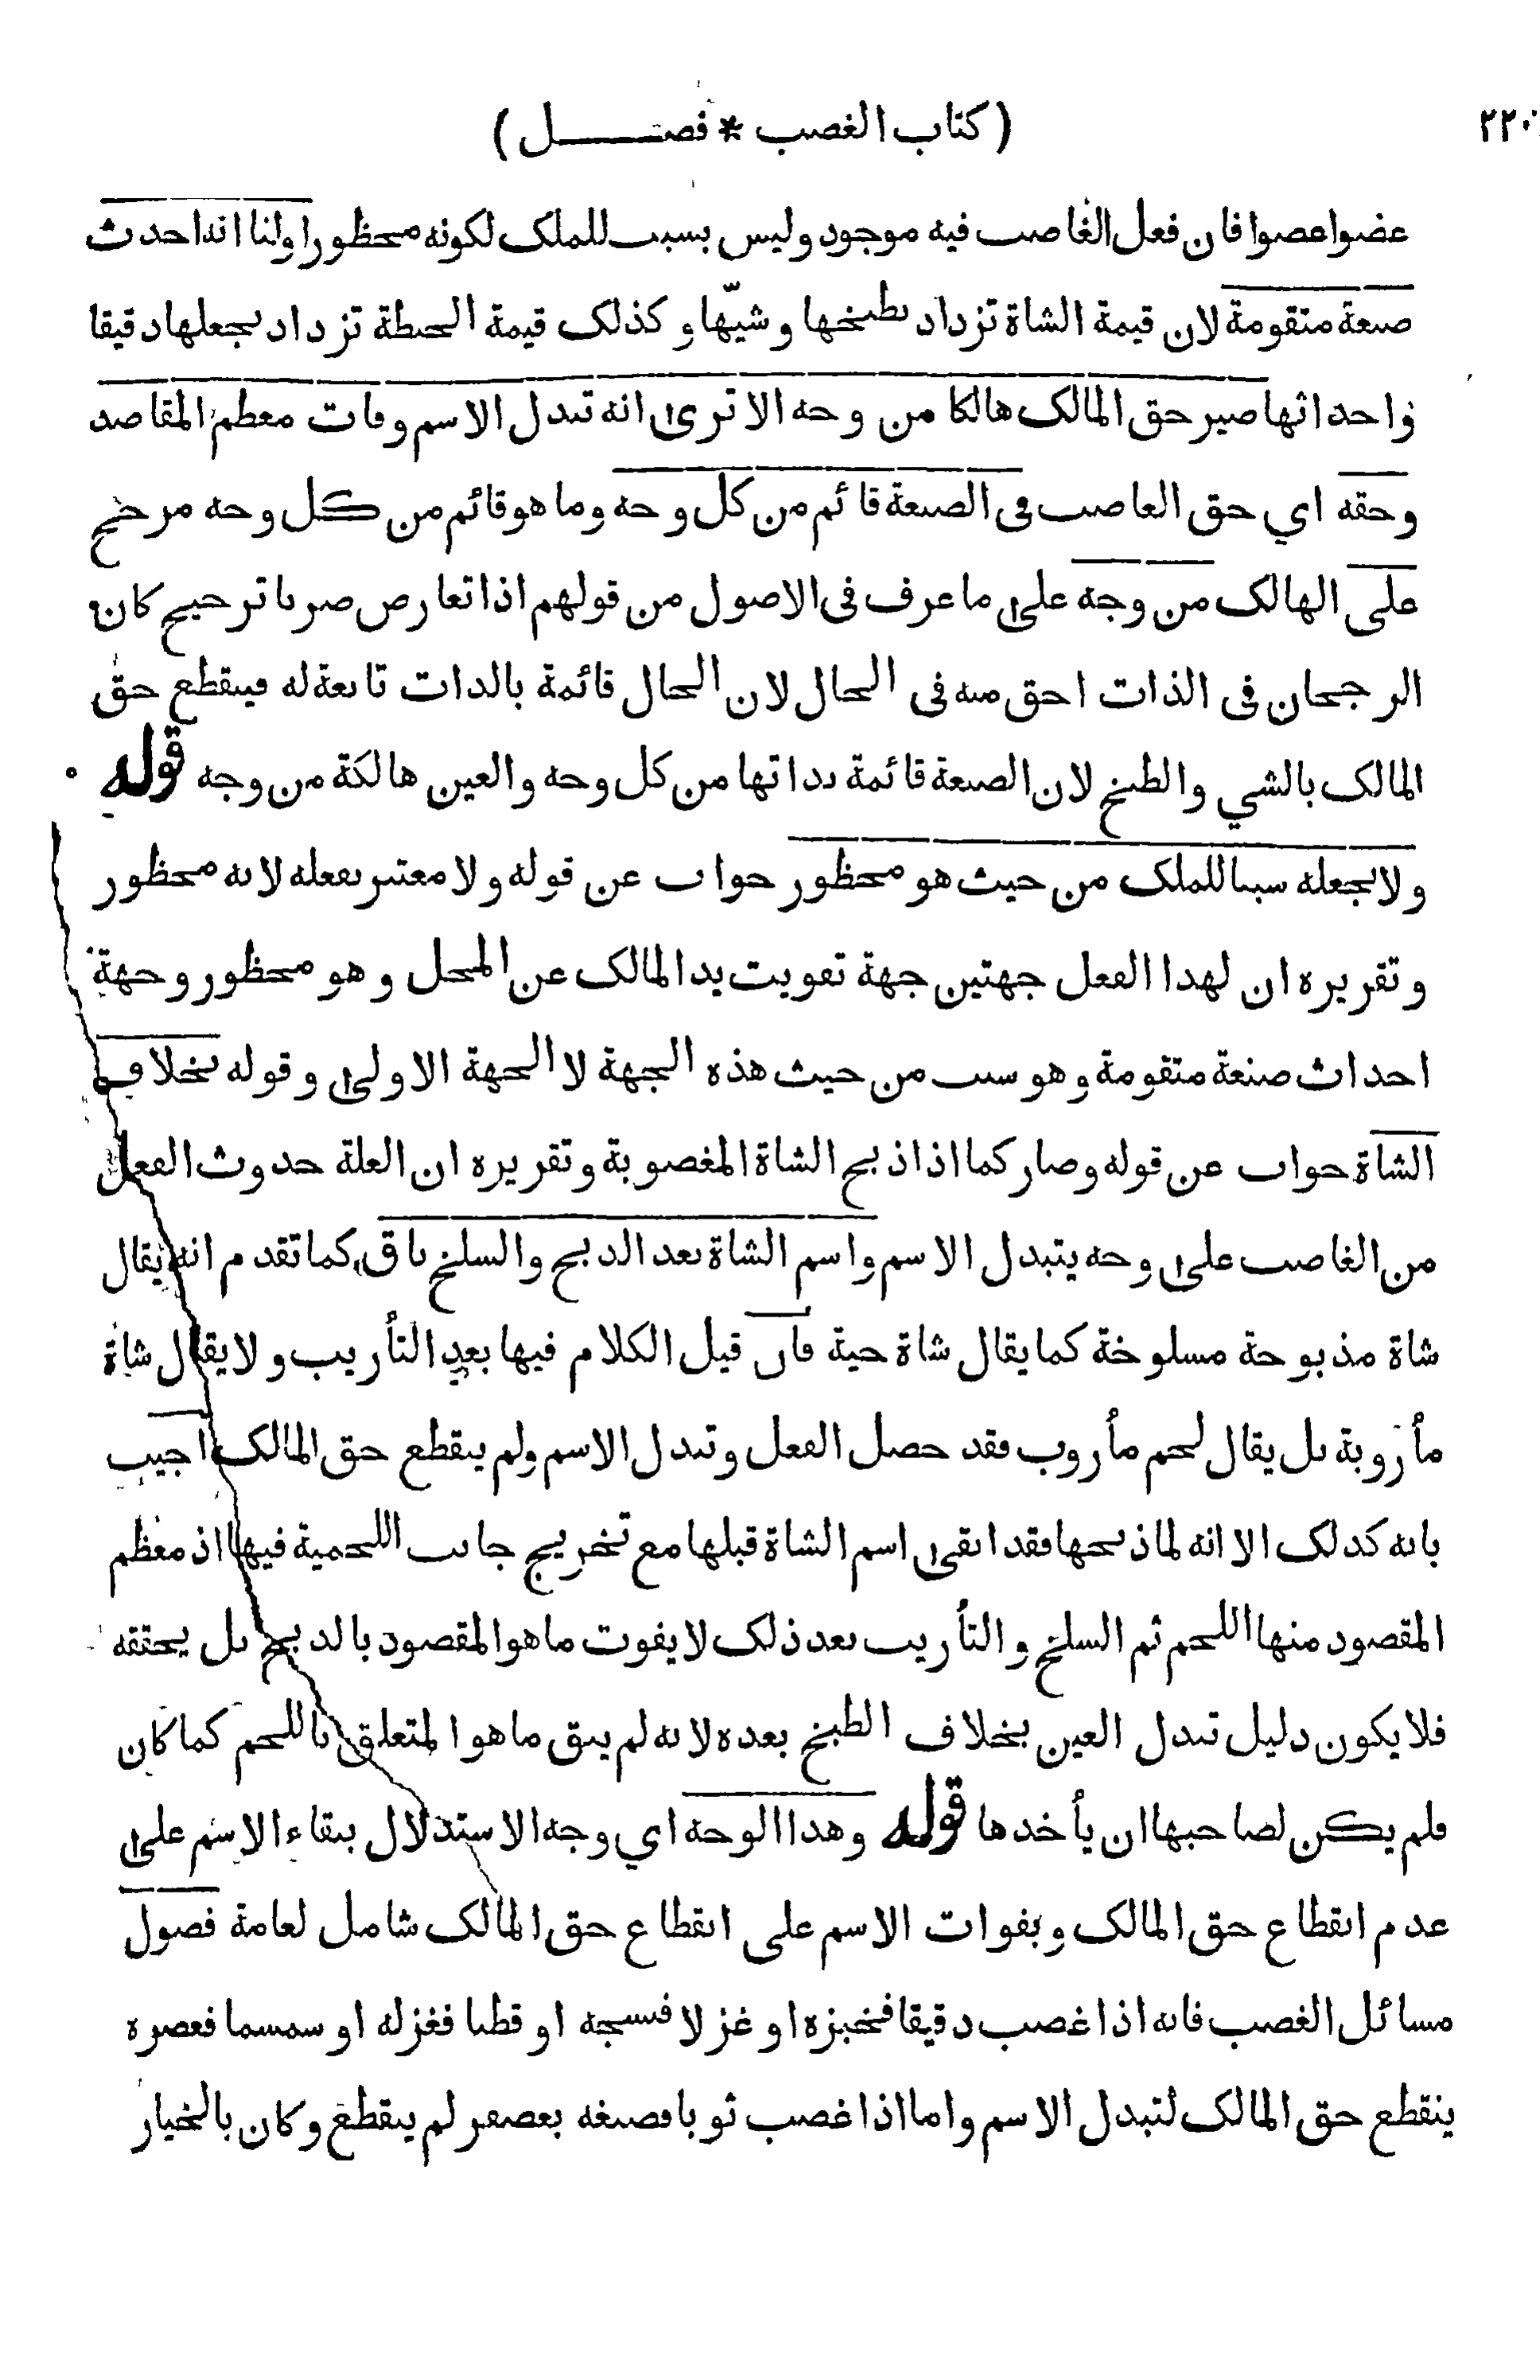 ٢٢٠
( كتاب الغصب * فصـــــل )
عضوا عضوا فان فعل الغاصب فيه موجود وليس بسبب للملك لكونه محظورا ولنا انه احدث
صنعة متقومة لان قيمة الشاة تزداد بطبخها وشيّها وكذلك قيمة الحنطة تزداد بجعلها دقيقا
واحداثها صير حق المالك هالكا من وجه الا ترى انه تبدل الاسم وفات معظم المقاصد
وحقه اي حق الغاصب في الصنعة قائم من كل وجه وما هو قائم من كل وجه مرجح
على الهالك من وجه على ما عرف في الاصول من قولهم اذا تعارض ضربا ترجيح كان
الرجحان في الذات احق منه في الحال لان الحال قائمة بالذات تابعة له فينقطع حق
المالك بالشي والطبخ لان الصنعة قائمة بذاتها من كل وجه والعين هالكة من وجه قوله
ولا يجعله سببا للملك من حيث هو محظور جواب عن قوله ولا معتبر بفعله لانه محظور
وتقريره ان لهذا الفعل جهتين جهة تفويت يد المالك عن المحل وهو محظور وجهة
احداث صنعة متقومة وهو سبب من حيث هذه الجهة لا الجهة الاولى وقوله بخلاف
الشاة جواب عن قوله وصار كما اذا ذبح الشاة المغصوبة وتقريره ان العلة حدوث الفعل
من الغاصب على وجه يتبدل الاسم واسم الشاة بعد الذبح والسلخ باق كما تقدم انه يقال
شاة مذبوحة مسلوخة كما يقال شاة حية فان قيل الكلام فيها بعد التأريب ولا يقال شاة
مأروبة بل يقال لحم مأروب فقد حصل الفعل وتبدل الاسم ولم ينقطع حق المالك اجيب
بانه كذلك الا انه لما ذبحها فقد ابقى اسم الشاة قبلها مع تخريج جانب اللحمية فيها اذ معظم
المقصود منها اللحم ثم السلخ والتأريب بعد ذلك لا يفوت ما هو المقصود بالذبح بل يحققه
فلا يكون دليل تبدل العين بخلاف الطبخ بعده لانه لم يبق ما هو المتعلق باللحم كما كان
فلم يكن لصاحبها ان يأخذها قوله وهذا الوجه اي وجه الاستدلال ببقاء الاسم على
عدم انقطاع حق المالك وبفوات الاسم على انقطاع حق المالك شامل لعامة فصول
مسائل الغصب فانه اذا غصب دقيقا فخبزه او غزلا فنسجه او قطنا فغزله او سمسما فعصره
ينقطع حق المالك لتبدل الاسم واما اذا غصب ثوبا فصبغه بعصفر لم ينقطع وكان بالخيار